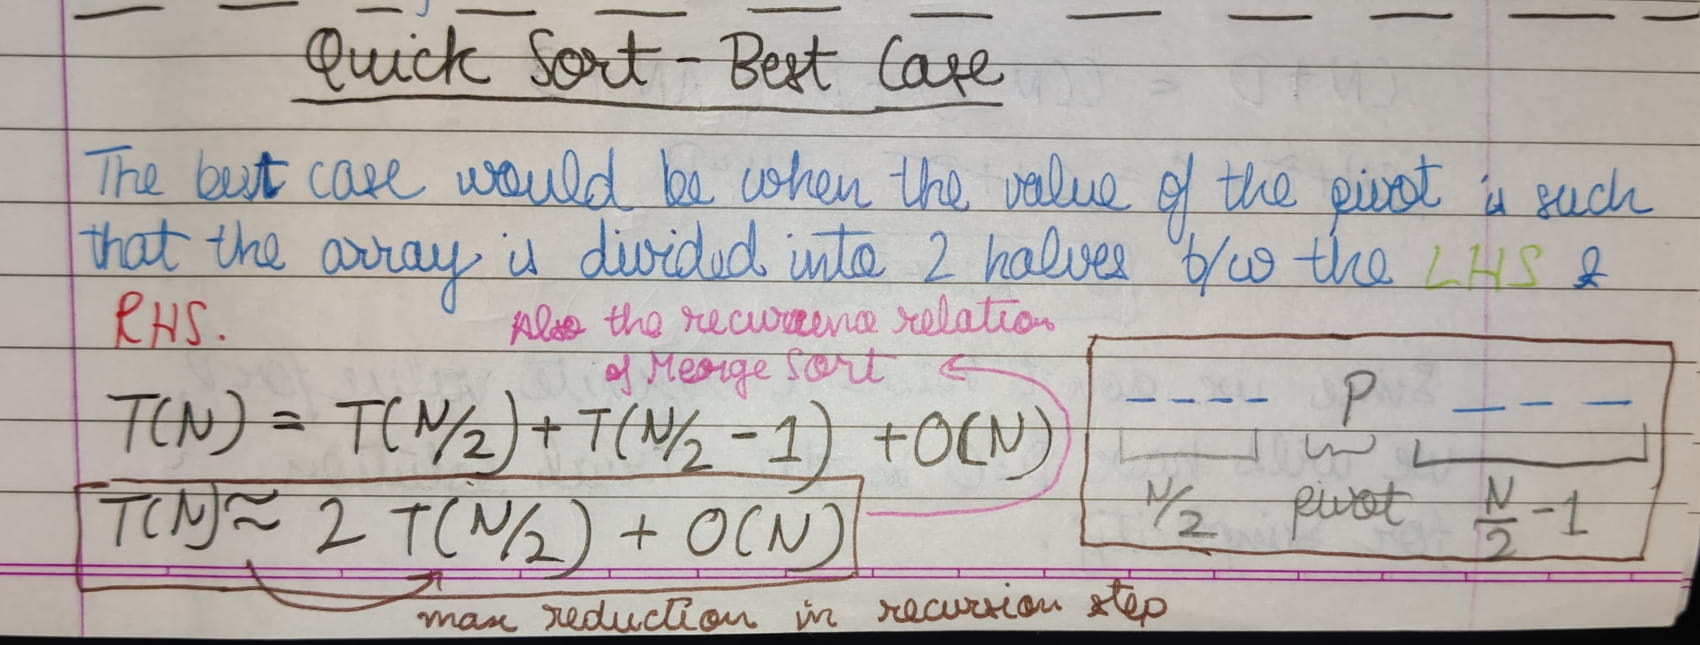 Quick Sort - Best Case
The best case would be when the value of the pivot is such
that the array is divided into 2 halves b/w the LHS &
RHS.
Also the recurrence relation
of Merge Sort
T(N) = T(N/2) + T(N/2 - 1) + O(N)
T(N) ≈ 2 T(N/2) + O(N)
max reduction in recursion step
P
N/2 pivot N/2 - 1